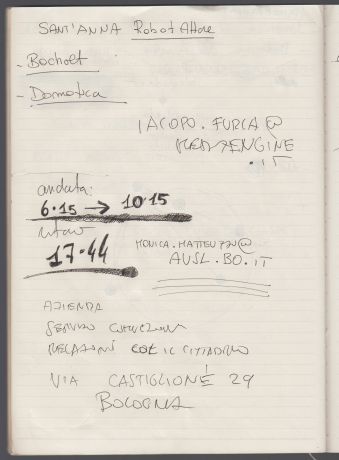 SANT'ANNA Robot Attore
- Bocholt
- Domotica
IACOPO.FURCA@
.IT
andata:
6.15 → 10.15
ritorno
17.44
MONICA.MATTEUZZI@
AUSL.BO.IT
AZIENDA
SERVIZIO
RELAZIONI COL IL CITTADINO
VIA CASTIGLIONE 29
BOLOGNA